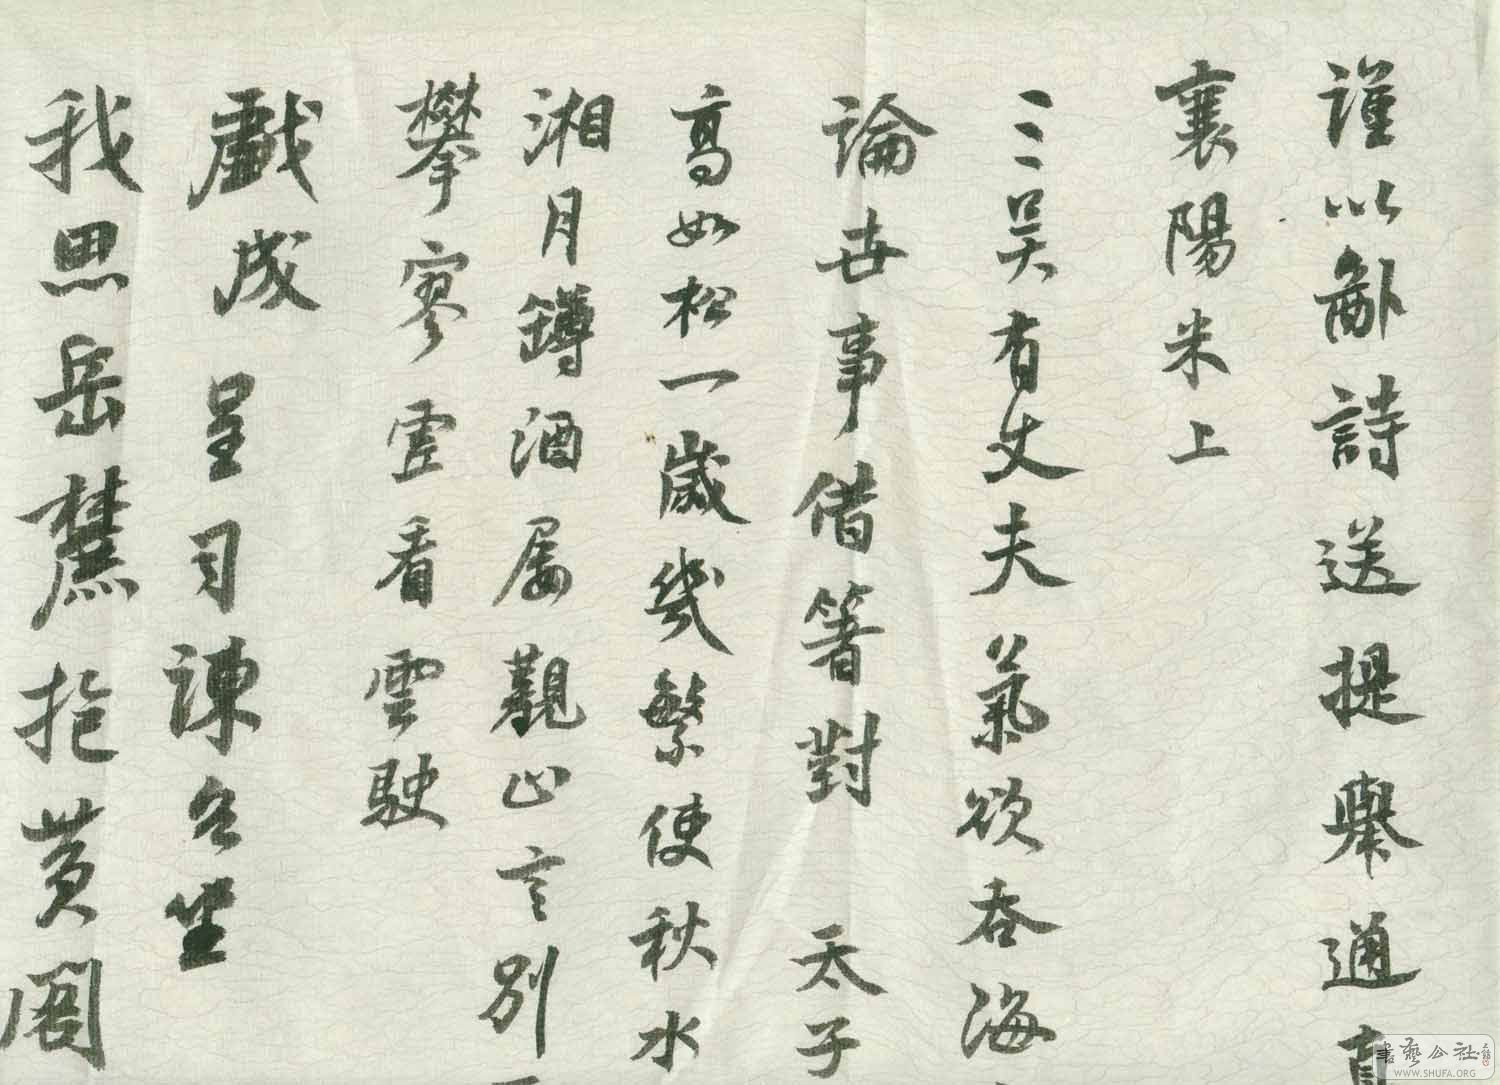 謹以鄙詩送提舉通
襄陽米上
三吳有丈夫氣欲吞海
論世事借箸對 天子
高如松一歲幾繁使秋水
湘月鐏酒屢觀止言別
攀寥看雲駛
戲成呈司諫台坐
我思岳麓抱黃閣
書藝公社
WWW.SHUFA.ORG